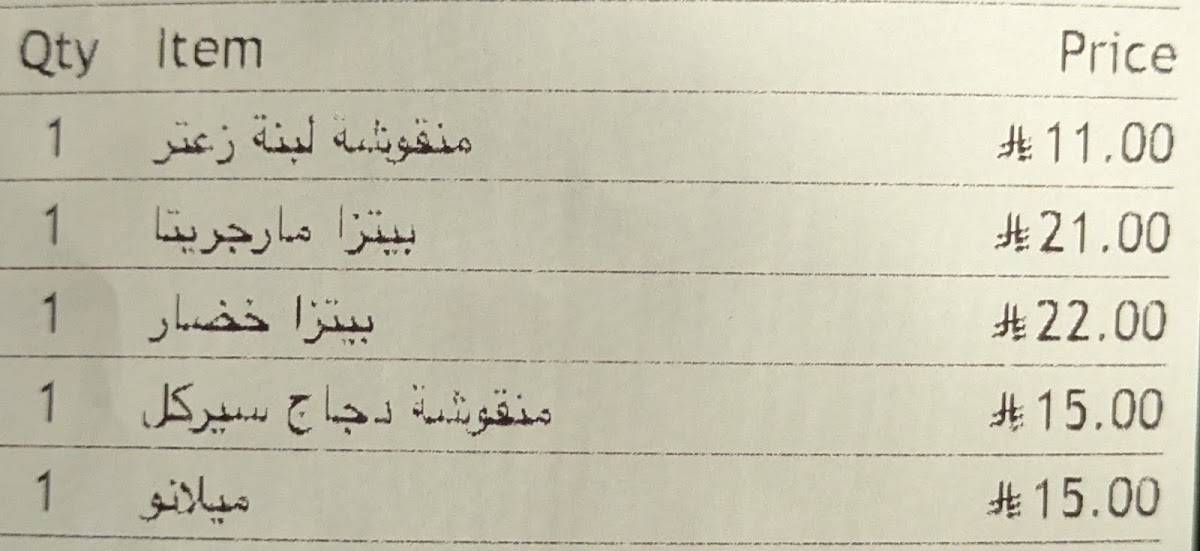 Qty Item Price
1 منقوشة لبنة زعتر ⃁ 11.00
1 بيتزا مارجريتا ⃁ 21.00
1 بيتزا خضار ⃁ 22.00
1 منقوشة دجاج سيركل ⃁ 15.00
1 ميلانو ⃁ 15.00